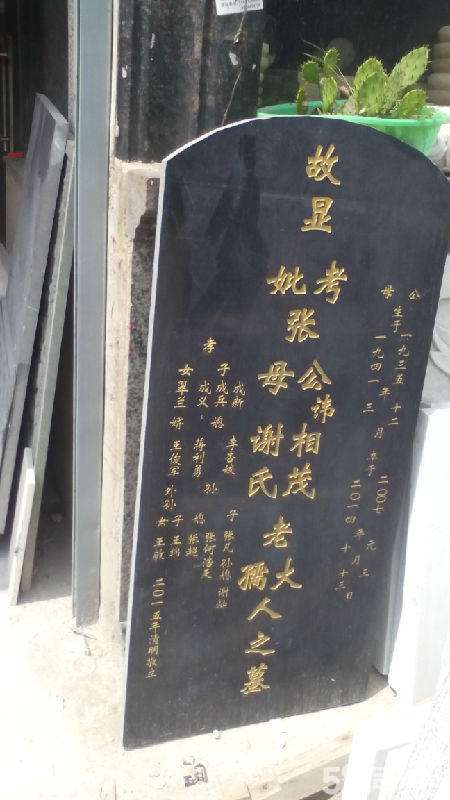 公 生于一九三五 十二 卒于二〇〇七 元 三
母 一九四一 三 年 月 二〇一四 年 十 月 十三 日
故显
考 妣
张
公讳相茂老大人之墓
母谢氏孺
孝
子 成新 成兵 成义
媳 李 蒋利勇
女 翠兰 婿 王俊军
孙 子 张凡 张何 孙媳 谢
外孙 子 王 女 王敏
二〇一五年清明敬立